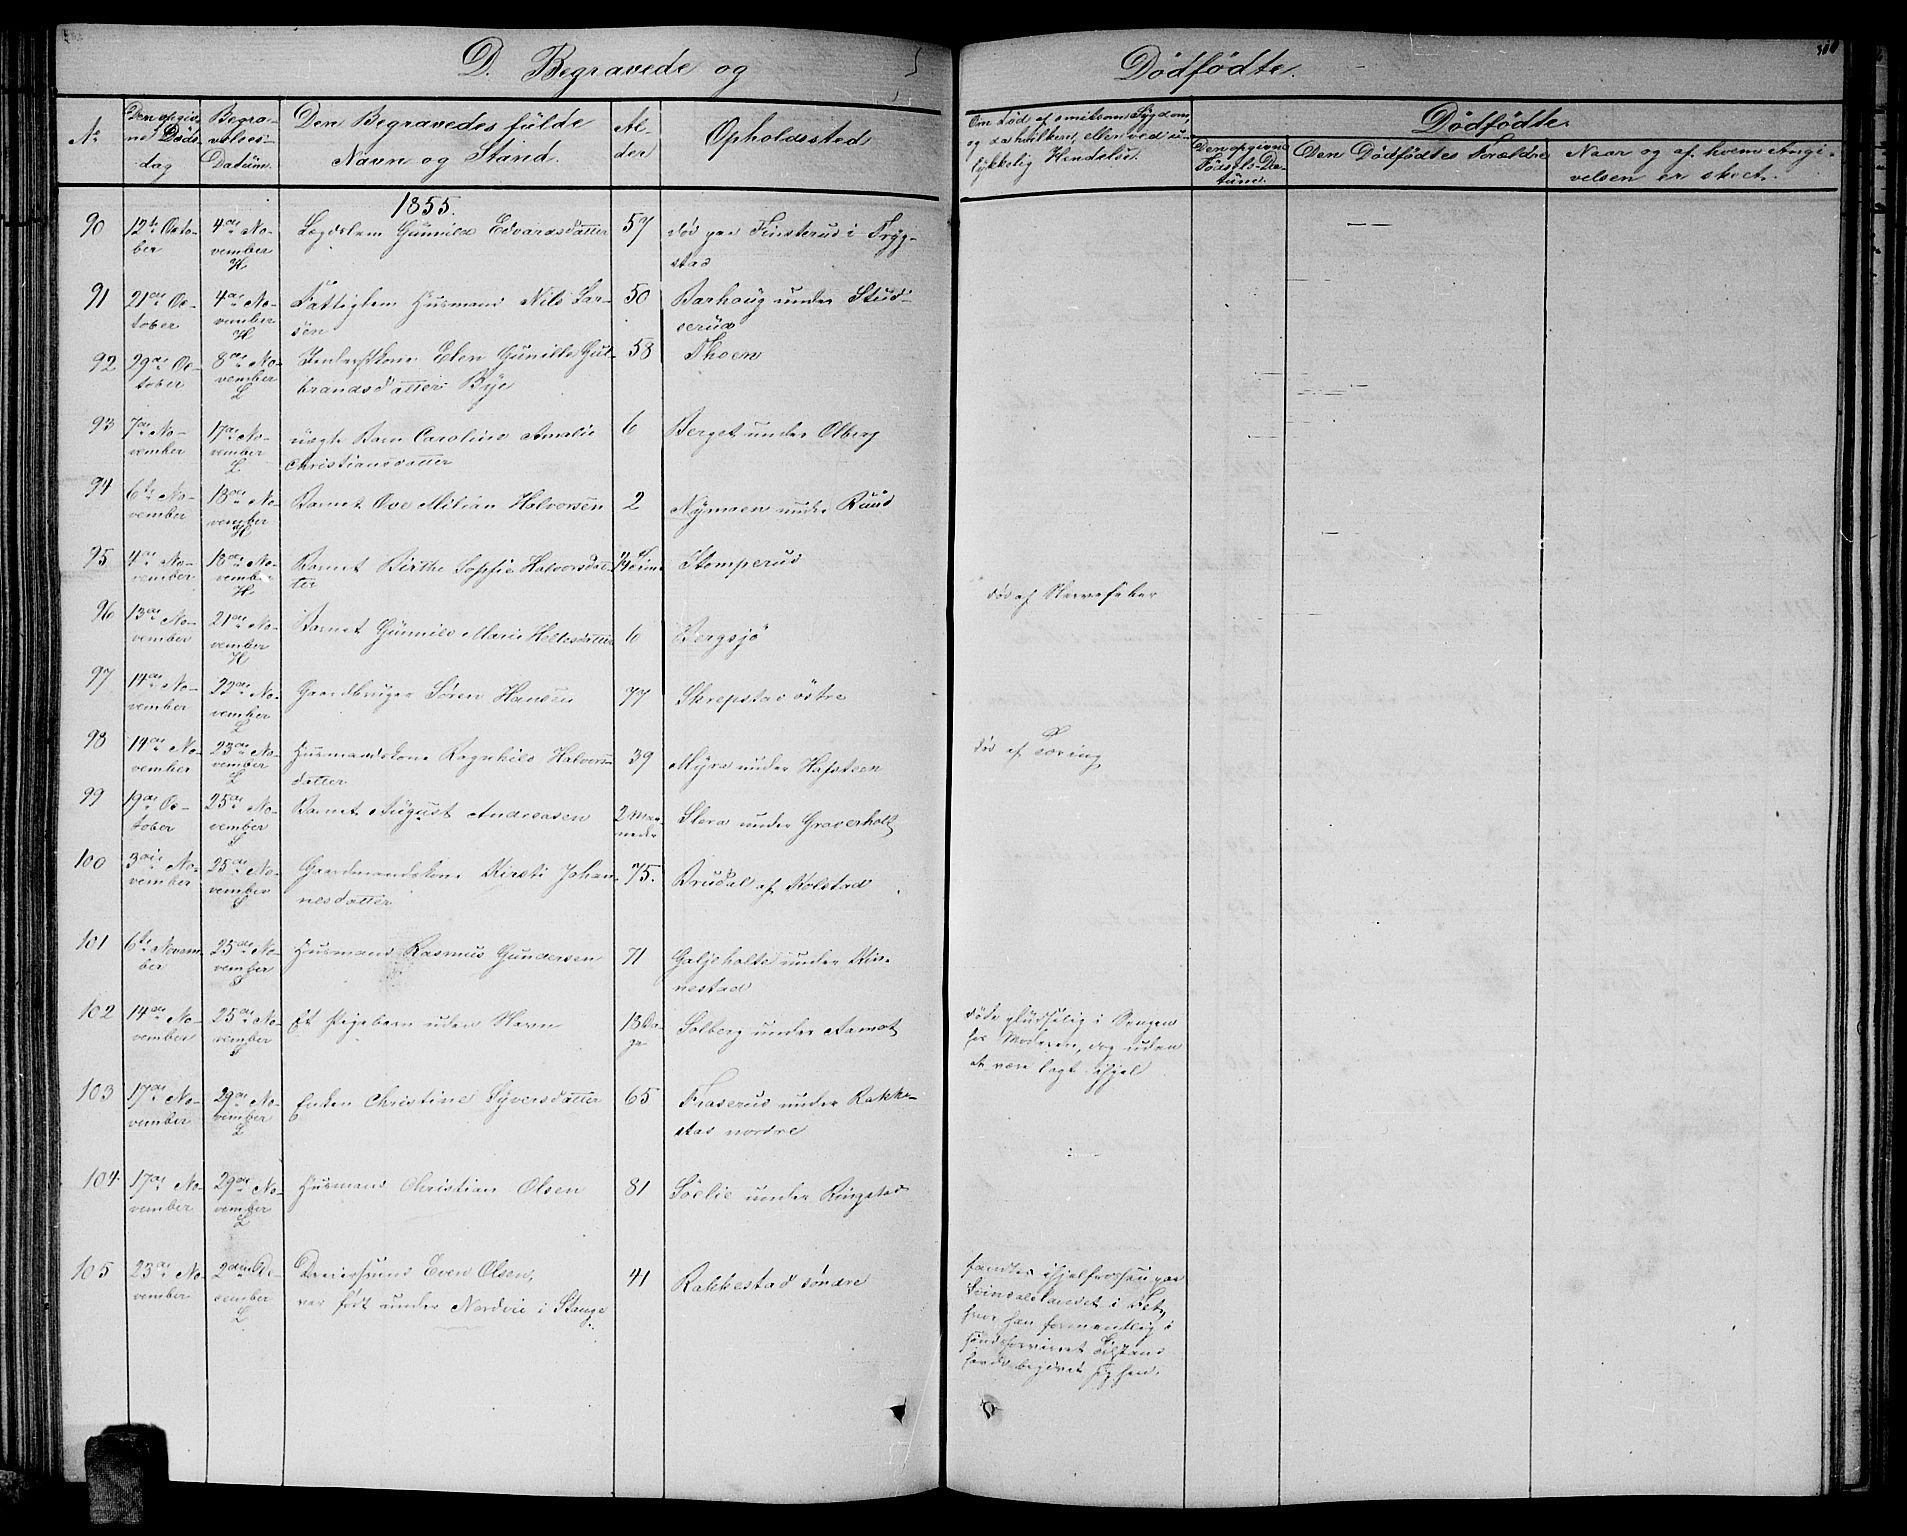 D. Begravede og
Dødfødte.
300
No
Den opgiv-
ne Døds-
dag
Begra-
velses-
Datum.
Den Begravedes fulde
Navn og Stand.
Al-
der
Opholdssted
Om død af smitsom Sygdom,
og da hvilken, eller ved u-
lykkelig Hændelse.
Dødfødte.
Den opgivne
Fødsels-Da-
tum.
Den Dødfødtes Forældre
Naar og af hvem Angi-
velsen er skeet.
1855.
90 12te Octo-
ber
4de No-
vember
H
Lægdslem Gunnild Edvardsdatter 57 død paa Finsterud i Tryg-
stad
91 21de Oc-
tober
4de No-
vember
H
Fattiglem Husmand Nils Lar-
sen
50 Barhoug under Stud-
serud
92 29de Oc-
tober
8de No-
vember
L
Inderstkone Elen Gunille Gul-
brandsdatter Bye
58 Thoen
93 7de No-
vember
17de No-
vember
L
uægte Barn Caroline Amalie
Christiansdatter
6 Berget under Olberg
94 6te No-
vember
18de No-
vember
H
Barnet Ove Milian Halvorsen 2 Nymoen under Ruud
95 4de No-
vember
18de No-
vember
H
Barnet Birthe Sophie Halvorsdat-
ter
14 Stomperud
96 13de No-
vember
21de No-
vember
H
Barnet Gunnild Marie Heltesdatter 6 Bergsjö
død af Nervefeber
97 14de No-
vember
22de No-
vember
L
Gaardbruger Søren Hansen 77 Skrepstad östre
98 14de No-
vember
23de No-
vember
L
Husmandskone Ragnhild Halvors-
datter
39 Myra under Hafsteen
død af Tæring
99 19de Oc-
tober
25de No-
vember
S
Barnet August Andreasen 2 Maa-
neder
Slora under Graverholt
100 3die No-
vember
25de No-
vember
S
Gaardmandskone Kirsti Johan-
nesdatter
75. Brudal af Kolstad
101 6te Novem-
ber
25de No-
vember
S
Husmand Rasmus Gundersen 71 Galjeholte under Kin-
nestad
102 14de No-
vember
25de No-
vember
S
Et Pigebarn uden Navn 18 Da-
ge
Solberg under Aamot
døde pludselig i Sengen
hos Moderen, dog uden
at være lagt ihjel
103 17de No-
vember
29de No-
vember
L
Enken Christine Syversdatter 65 Fraserud under Rakke-
stad nordre
104. 17de No-
vember
29de No-
vember
L
Husmand Christian Olsen 81 Söelie under Ringstad
105 23de No-
vember
2den De-
cember
L
Even Olsen,
var født under Nordvie i Stange
41 Rakkestad søndre
fandtes ihjelfrossen paa
i Fet,
hvor han formentlig i
sindsforvirret Tilstand
havde begivet sig hen.